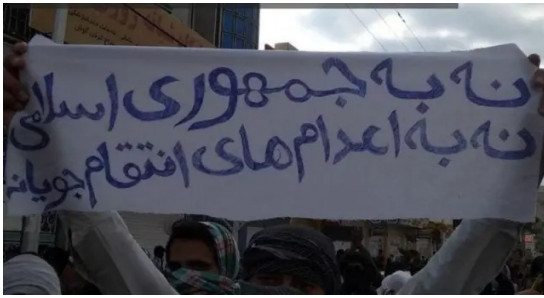 نه به جمهوری اسلامی
نه به اعدام های انتقام جویانه